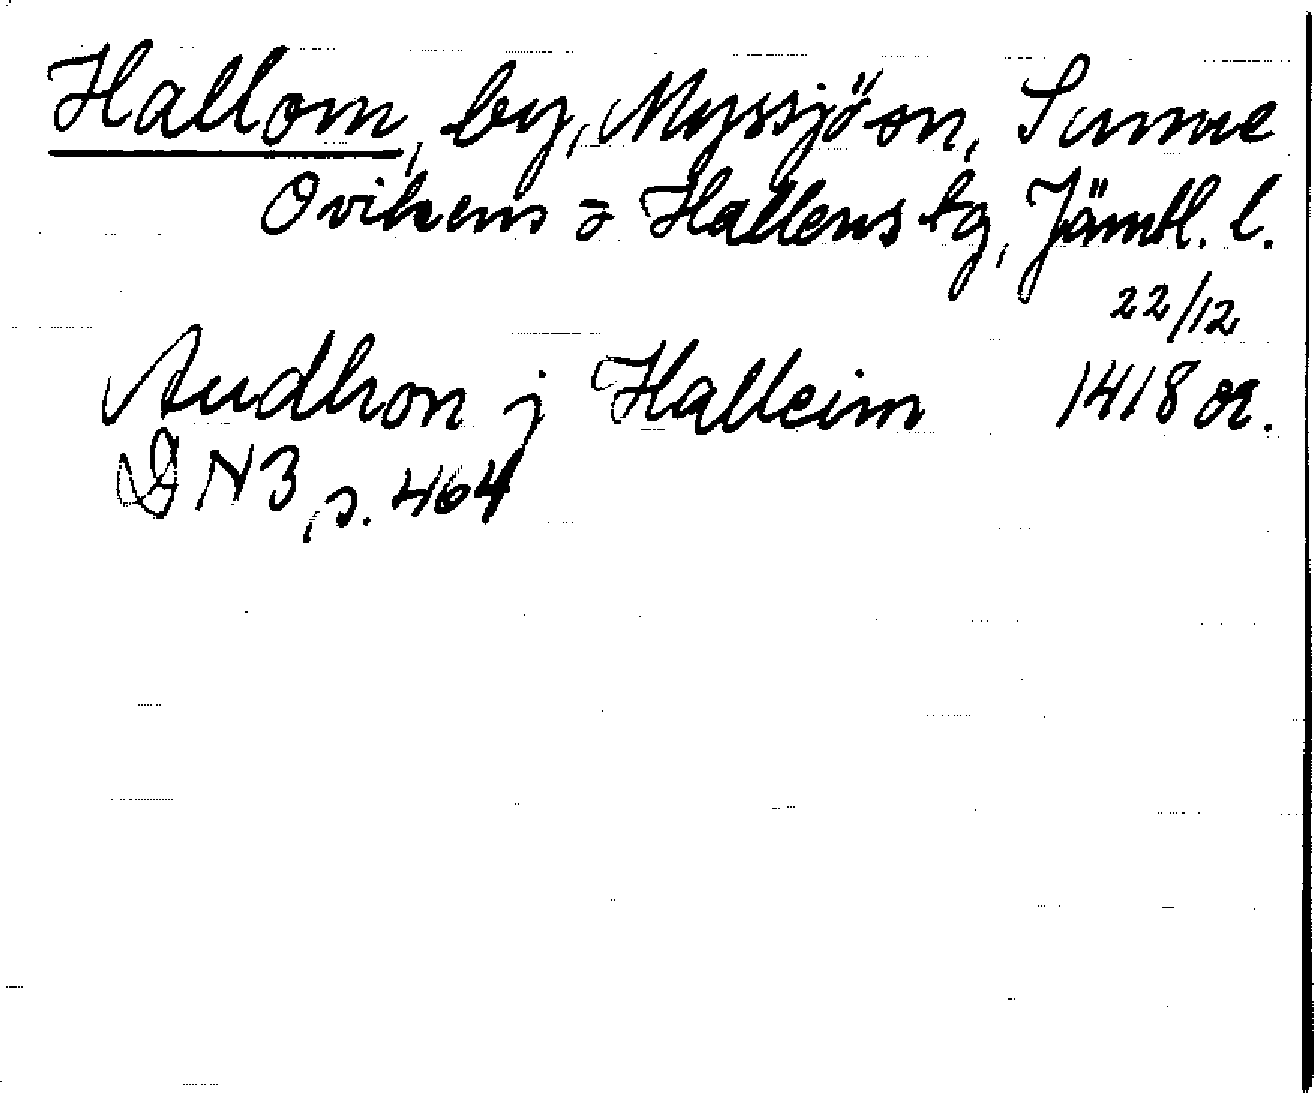 Hallom, by, Myssjö sn, Sunne
Ovikens o Hallens tg, Jämtl. l.
22/12
Audhon j Halleim 1418 or.
DN3, s. 464